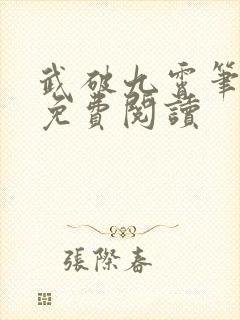 武破九霄筆
免費閱讀
張際春